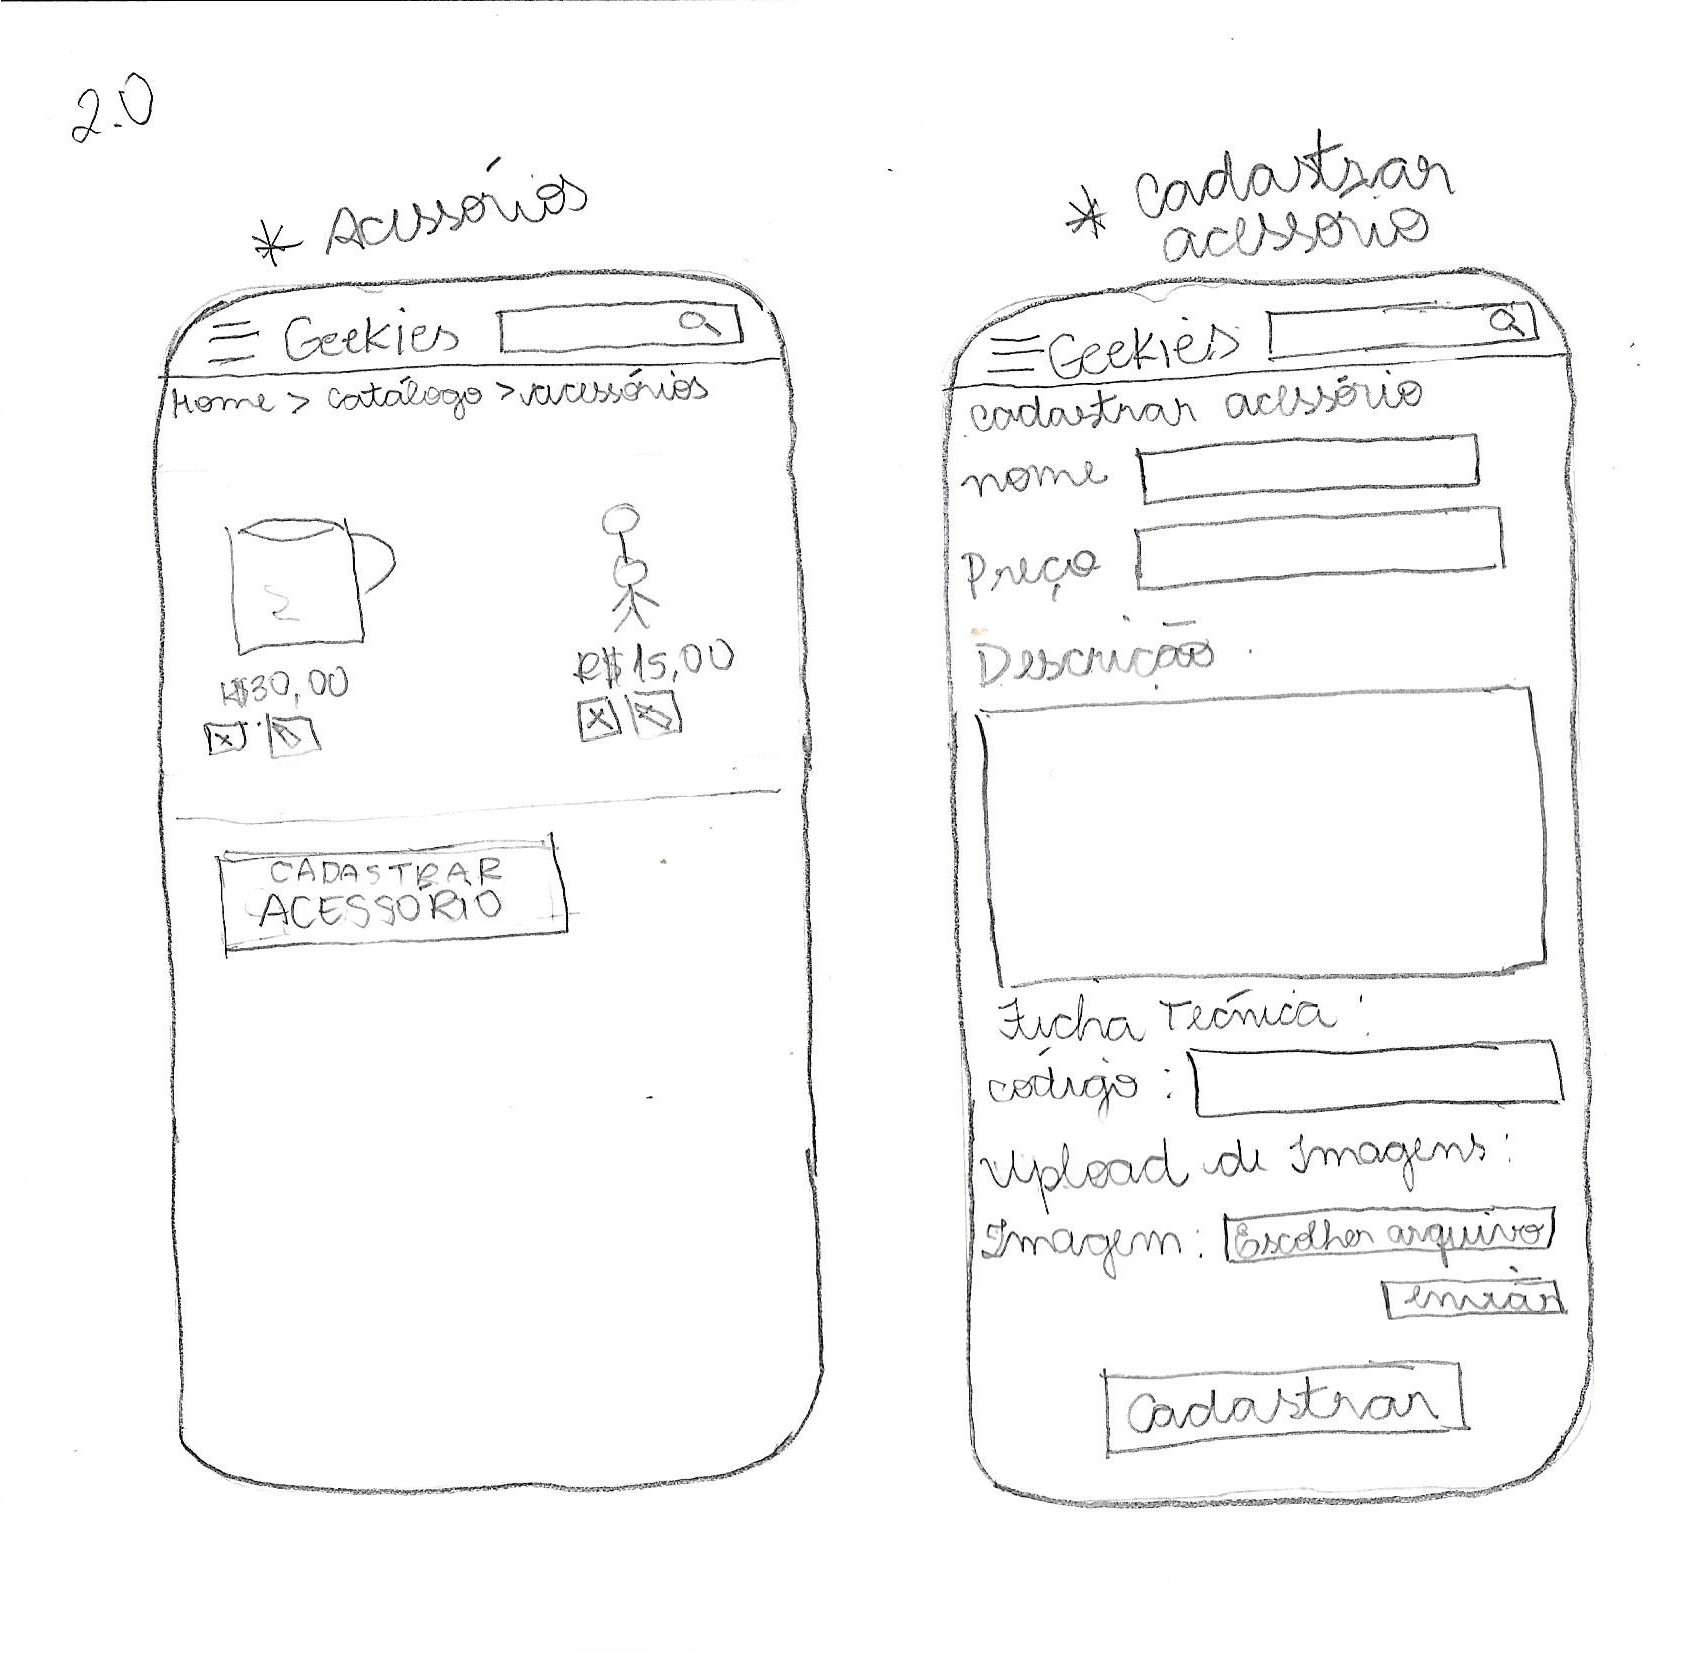 2.0
* Acessórios
Geekies
Home > Catálogo > acessórios
R$30,00
R$15,00
x
x
CADASTRAR
ACESSÓRIO
* Cadastrar
acessório
Geekies
cadastrar acessório
nome
Preço
Descrição
Ficha Técnica:
código:
Upload de Imagens:
Imagem: Escolher arquivo
enviar
Cadastrar